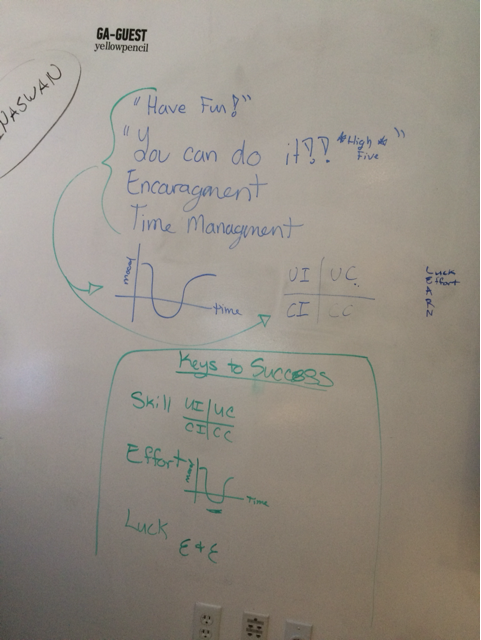 GA-GUEST
yellowpencil
NASWAN
"Have Fun!"
"You can do it!! *High Five* "
Encaragment
Time Managment
mood
time
UI UC
CI CC
Luck
Effort
A
R
N
Keys to Success
Skill UI/UC
CI CC
Effort
mood
Time
Luck
E & E